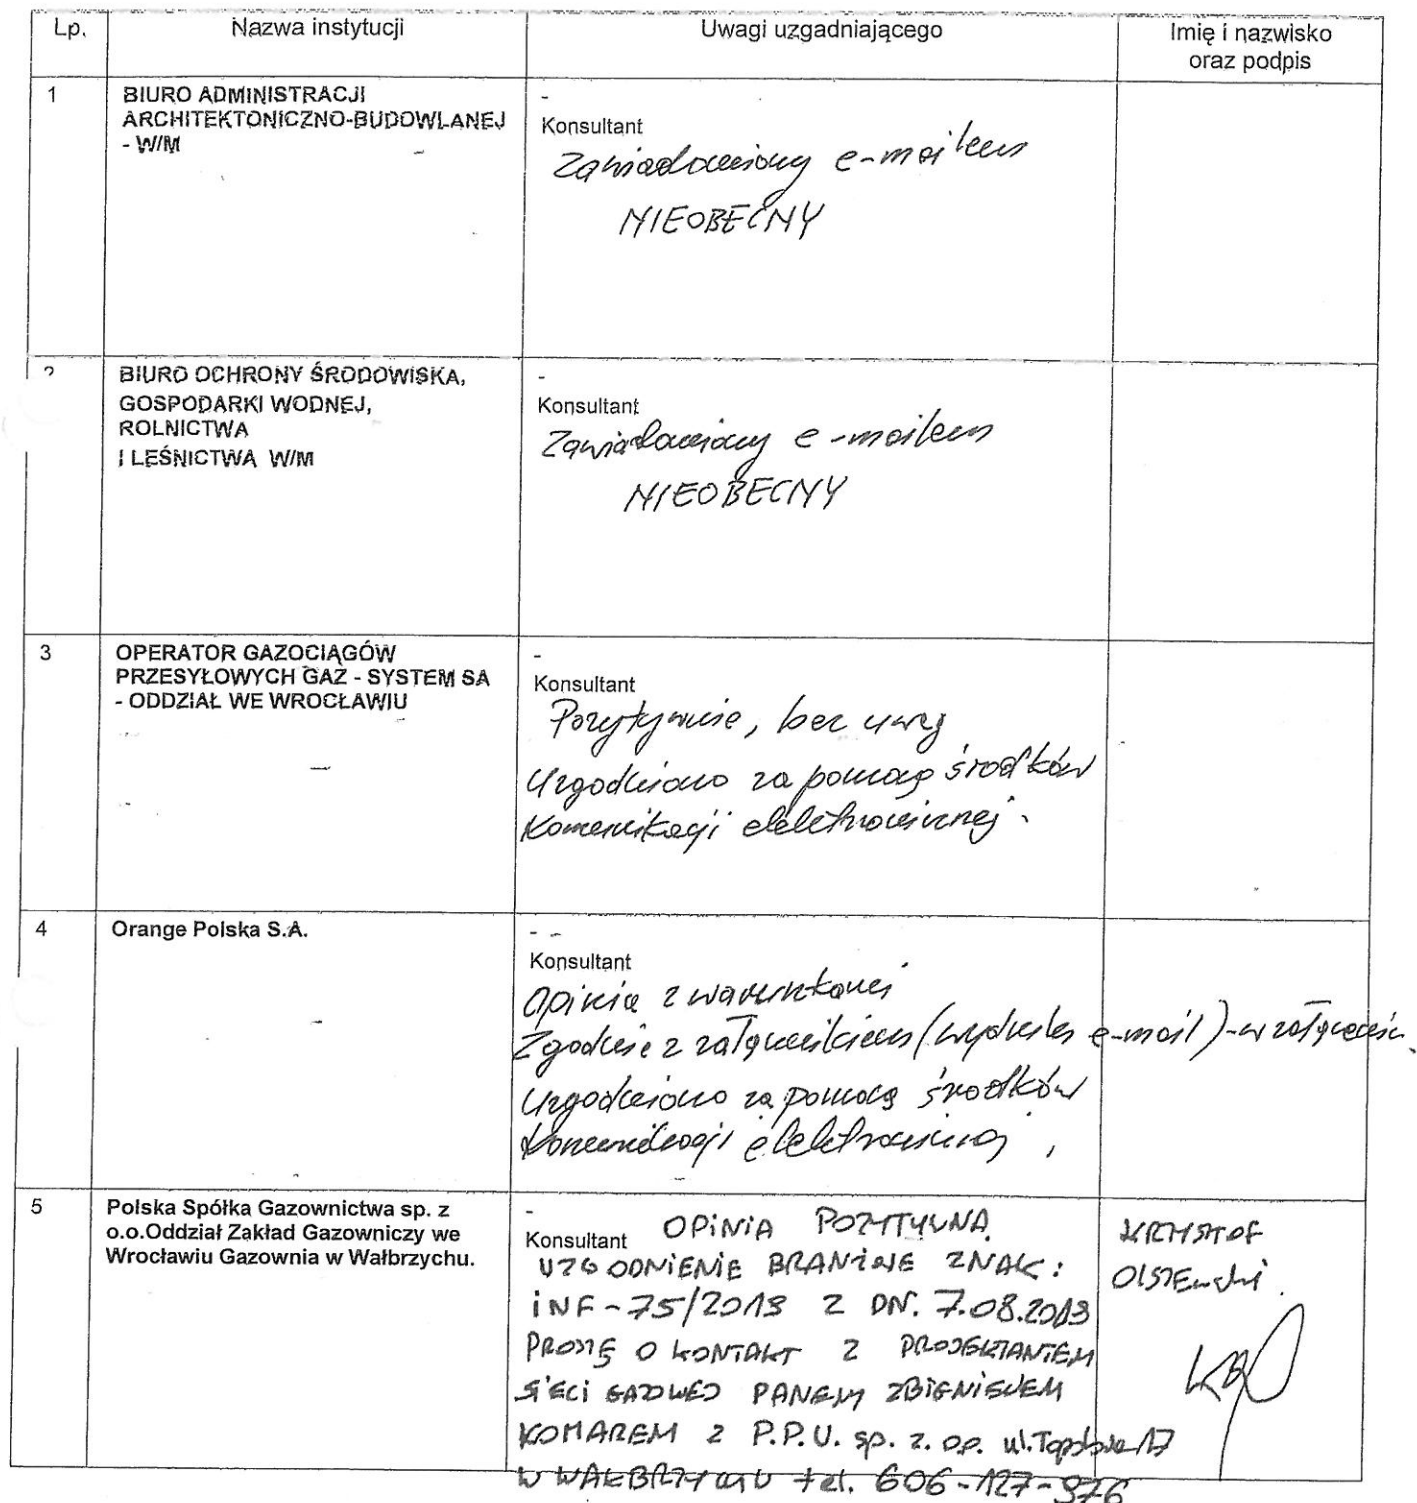 Lp. Nazwa instytucji Uwagi uzgadniającego Imię i nazwisko
oraz podpis
1 BIURO ADMINISTRACJI
ARCHITEKTONICZNO-BUDOWLANEJ
- W/M
-
Konsultant
Zawiadomiony e-mailem
NIEOBECNY
2 BIURO OCHRONY ŚRODOWISKA,
GOSPODARKI WODNEJ,
ROLNICTWA
I LEŚNICTWA W/M
-
Konsultant
Zawiadomiony e-mailem
NIEOBECNY
3 OPERATOR GAZOCIĄGÓW
PRZESYŁOWYCH GAZ - SYSTEM SA
- ODDZIAŁ WE WROCŁAWIU
-
Konsultant
Pozytywnie, bez uwag
Uzgodniono za pomocą środków
Komunikacji elektronicznej.
4 Orange Polska S.A.
-
Konsultant
Opinia z warunkami
Zgodnie z załącznikiem (wydruk e-mail) - w załączeniu.
Uzgodniono za pomocą środków
Komunikacji elektronicznej.
5 Polska Spółka Gazownictwa sp. z
o.o.Oddział Zakład Gazowniczy we
Wrocławiu Gazownia w Wałbrzychu.
-
Konsultant OPINIA POZYTYWNA
UZGODNIENIE BRANŻOWE ZNAK:
INF-75/2013 Z DN. 7.08.2013
PROSZĘ O KONTAKT Z PROJEKTANTEM
SIECI GAZOWEJ PANEM ZBIGNIEWEM
KOMAREM Z P.P.U. sp. z. o.o. ul.
W WAŁBRZYCHU tel. 606-127-976
KRZYSZTOF
OLSZEWSKI